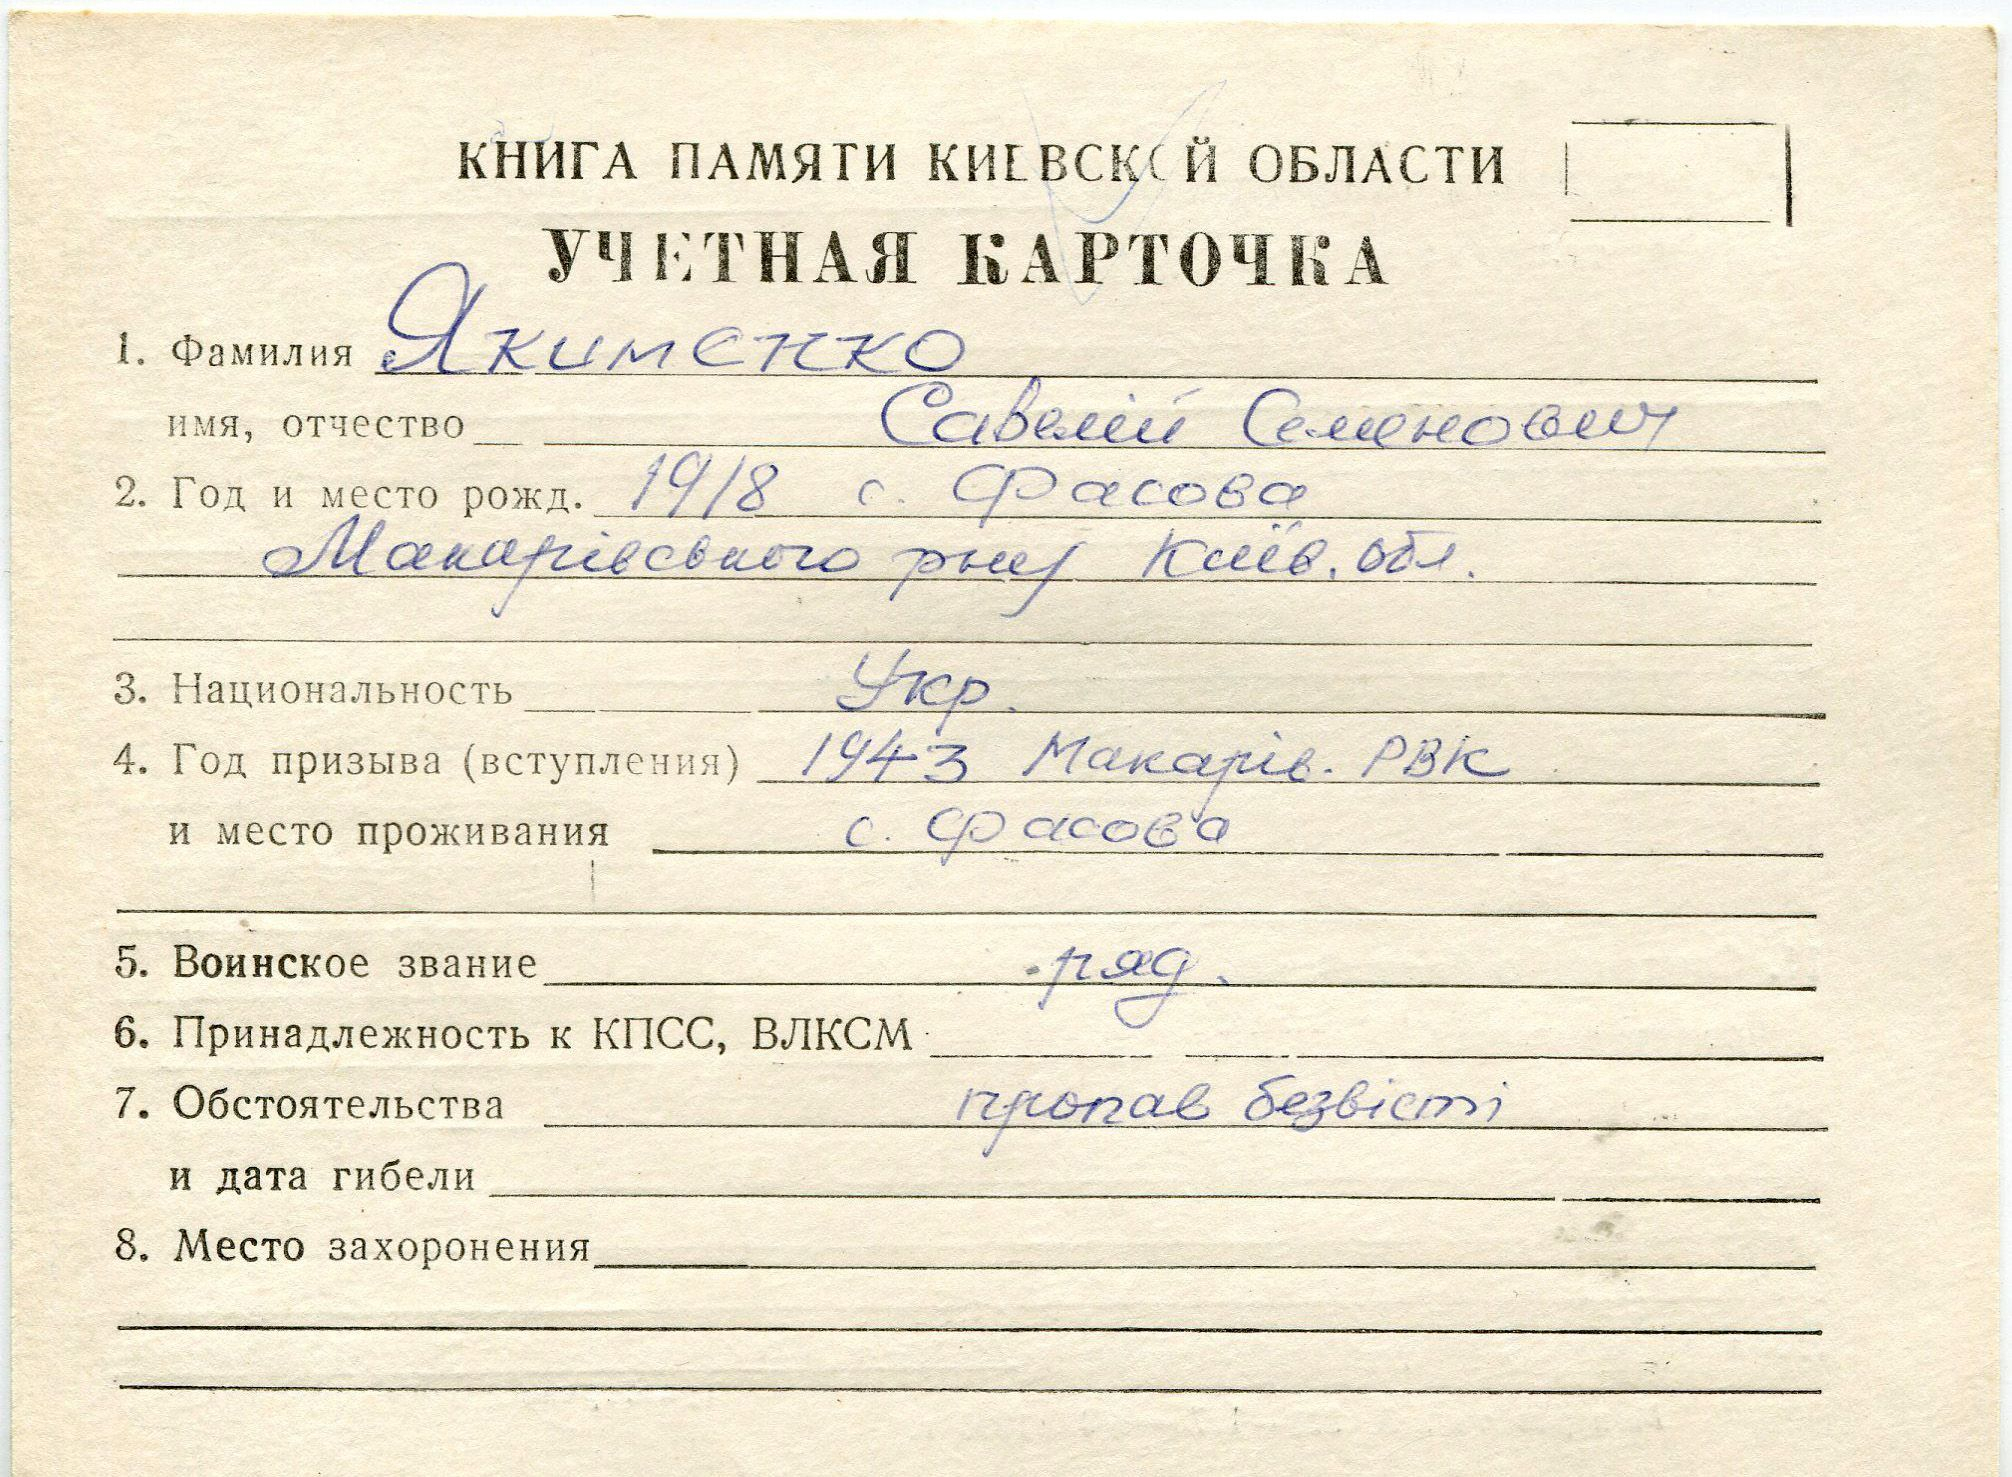 КНИГА ПАМЯТИ КИЕВСКОЙ ОБЛАСТИ
УЧЕТНАЯ КАРТОЧКА
1. Фамилия Якименко
имя, отчество Савелій Семенович
2. Год и место рожд. 1918 с. Фасова
Макарівського р-ну Київ. обл.
3. Национальность Укр.
4. Год призыва (вступления) 1943 Макарів. РВК
и место проживания с. Фасова
5. Воинское звание ряд.
6. Принадлежность к КПСС, ВЛКСМ
7. Обстоятельства пропав безвісті
и дата гибели
8. Место захоронения